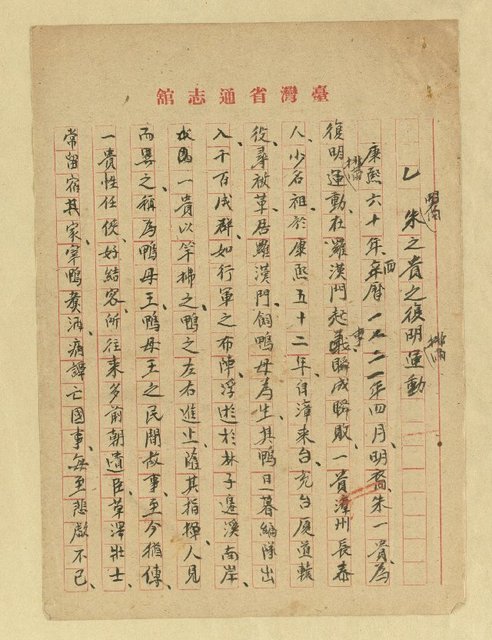 臺灣省通志館
乙 明裔朱之貴之復明排滿運動
康熙六十年、西曆一七二一年四月、明裔朱一貴、為
復明排滿運動、在羅漢門起事、瞬成瞬敗、一貴漳州長泰
人、少名祖、於康熙五十二年自漳來台、充台廈道轅
役、尋被革、居羅漢門飼鴨母為生、其鴨日暮編隊出
入、千百成群、如行軍之布陣、浮游於林子邊溪南岸、
水面、一貴以竿掃之、鴨之左右進止、隨其指揮、人見
而異之、稱為鴨母王、鴨母王之民間故事、至今猶傳、
一貴性任俠、好結客、所往來多前朝遺臣、草澤壯士、
常留宿其家、宰鴨煑酒、痛譚亡國事、每至悲歔不已、